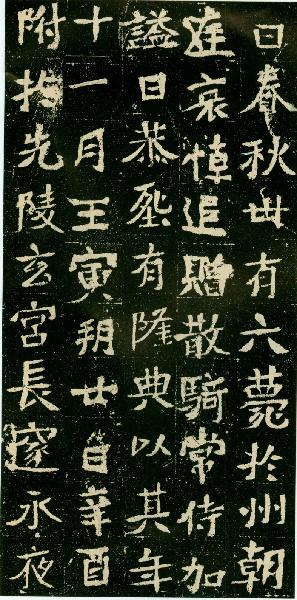 日春秋丗有六薨於州朝
廷哀悼追贈散騎常侍加
謚曰恭有隆典以其年
十一月壬寅朔廿日辛酉
附於先陵玄宮長邃永夜